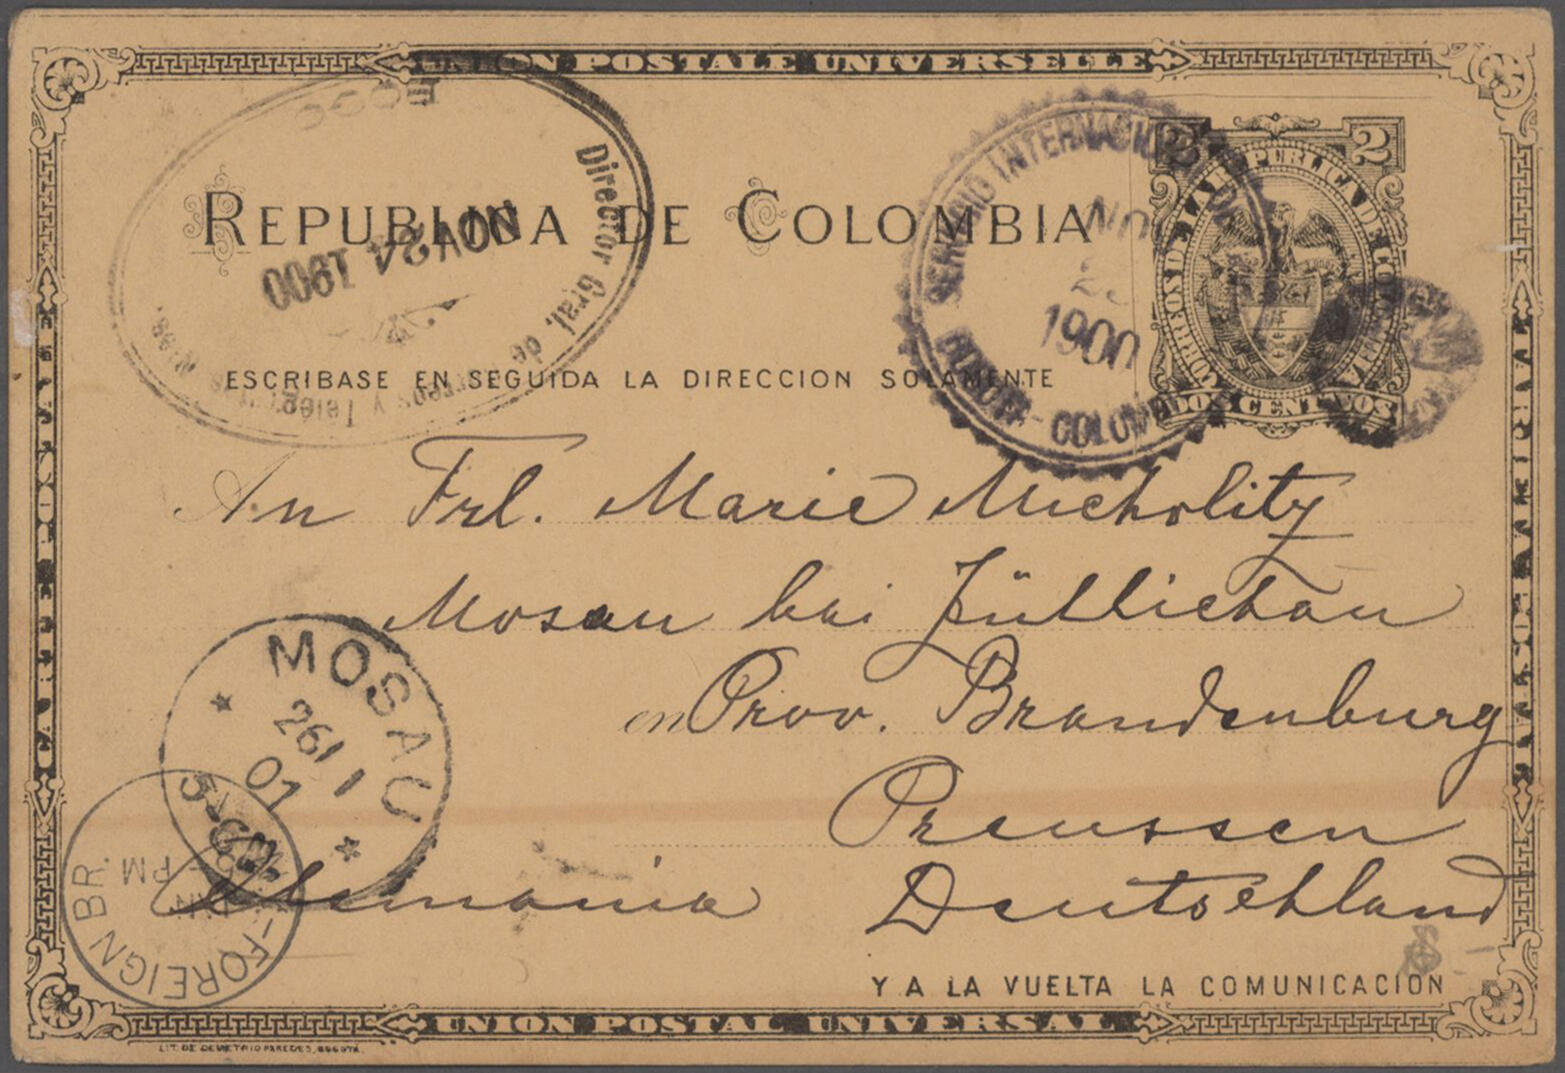 UNION POSTALE UNIVERSELLE
REPUBLICA DE COLOMBIA
2 2
CORREOS DE LA REPUBLICA DE COLOMBIA
DOS CENTAVOS
Director Gral. de Correos y Telégrafos
NOV 24 1900
SERVICIO INTERNACIONAL
NOV
1900
BOGOTA - COLOMBIA
ESCRIBASE EN SEGUIDA LA DIRECCION SOLAMENTE
An Frl. Marie Micholitz
Mosau bei Züllichau
en Prov. Brandenburg
Preussen
Alemania Deutschland
MOSAU
26/1
01
FOREIGN BR.
PM
Y A LA VUELTA LA COMUNICACION
UNION POSTAL UNIVERSAL
LIT. DE DEMETRIO PAREDES, BOGOTA.